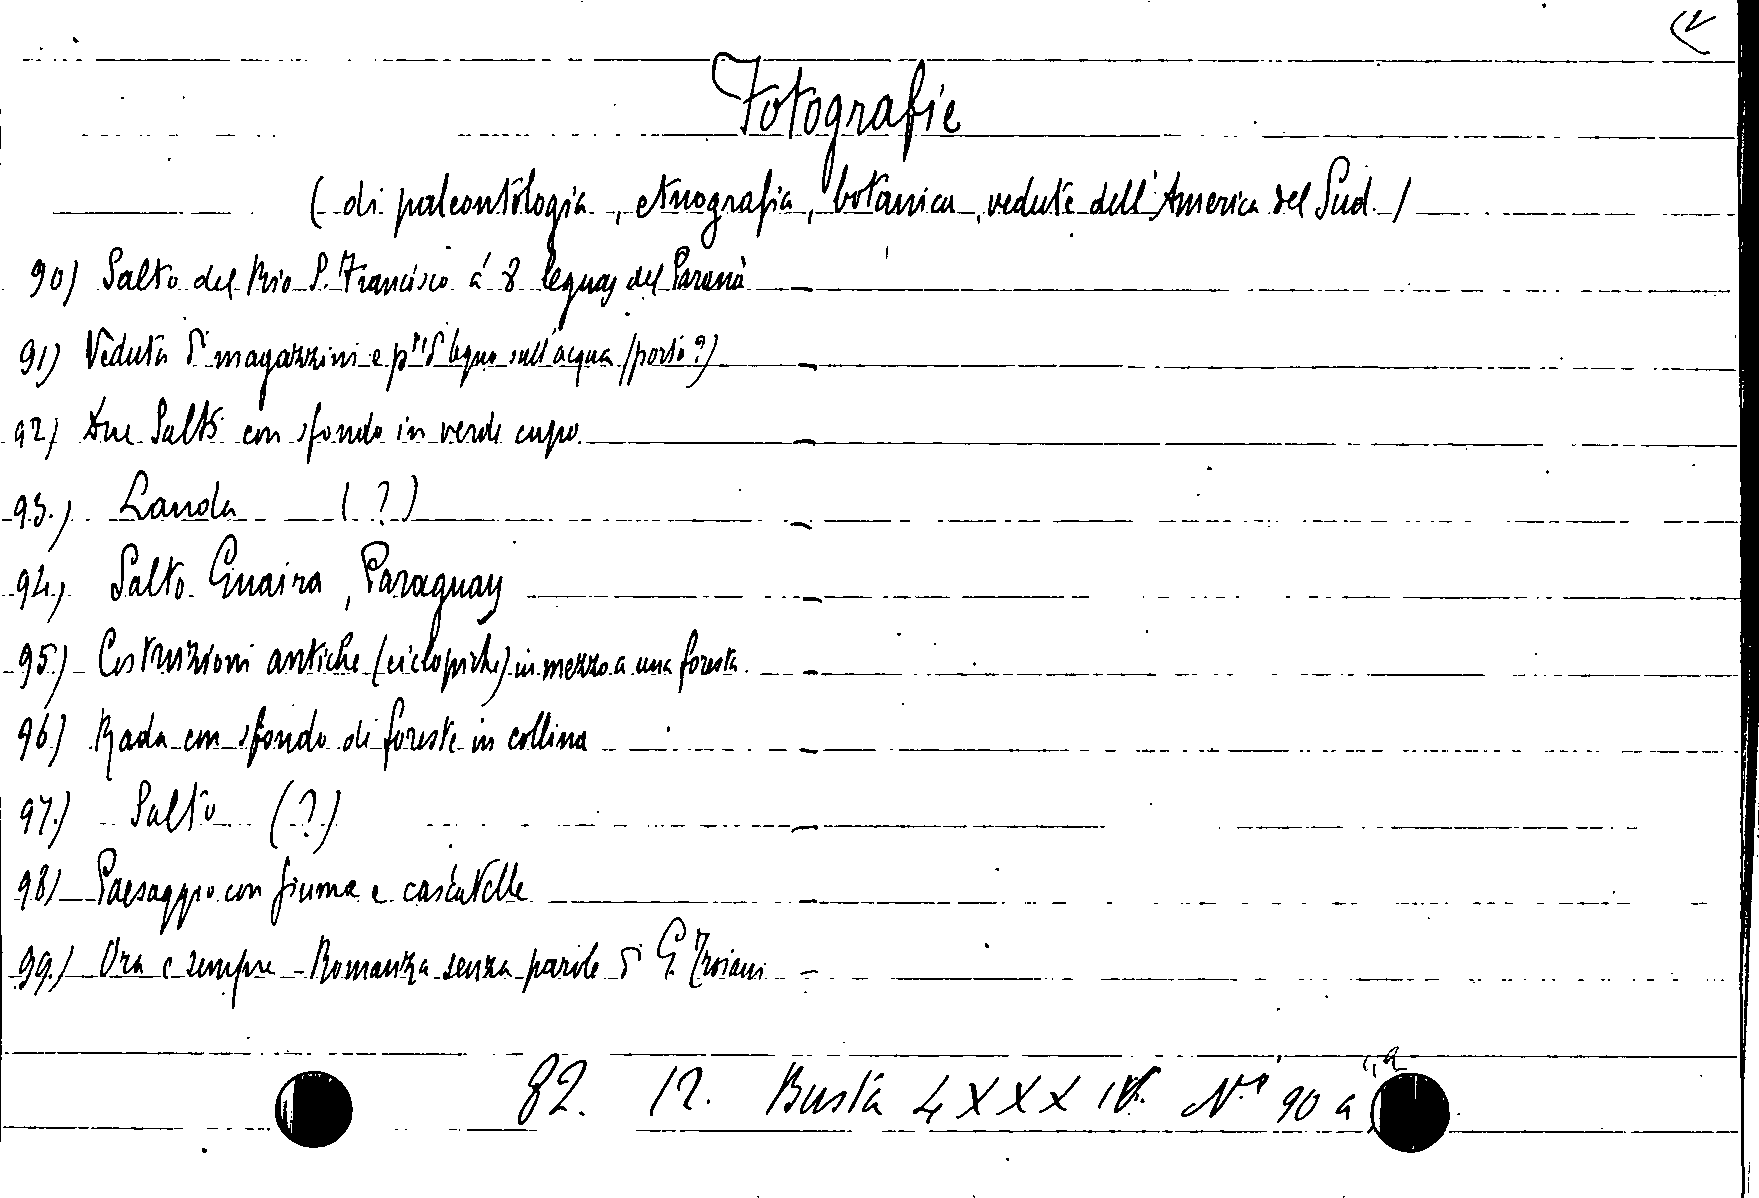 Fotografie
( di paleontologia, etnografia, botanica, vedute dell'America del Sud /
90) Salto del Rio S. Francisco á 8 leguas del Paraná -
91) Veduta di magazzini e pti di legno sull'acqua (porto?) -
92) Due Salti con sfondo in verde cupo. -
93.) Landa ( ? ) -
94.) Salto Guaira, Paraguay -
95.) Costruzioni antiche (ciclopiche) in mezzo a una foresta. -
96.) Rada con sfondo di foreste in collina -
97.) Salto (?) -
98) Paesaggio con fiume e cascatelle -
99.) Ora e sempre - Romanza senza parole di G. Troiani -
82. 12. Busta LXXXIV. N.i 90 a